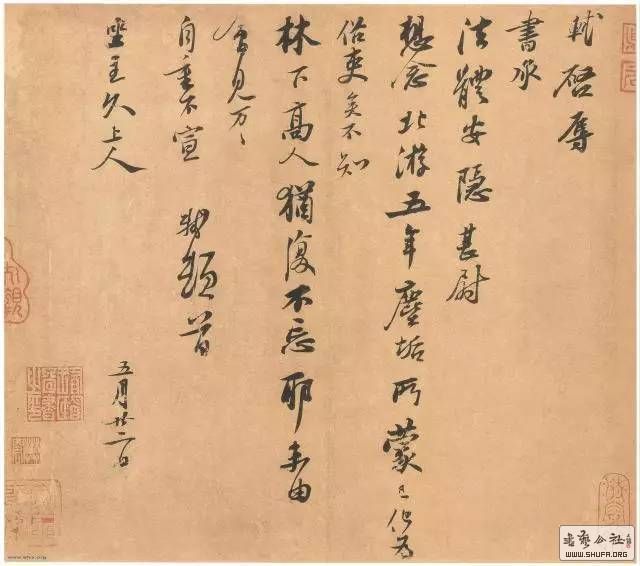 軾啓辱
書承
法體安隱甚尉
想念北游五年塵垢所蒙已化為
俗吏矣不知
林下高人猶復不忘耶未由
會見万々
自重不宣 軾頓首
坐主久上人
五月廿二日
書藝公社
WWW.SHUFA.ORG